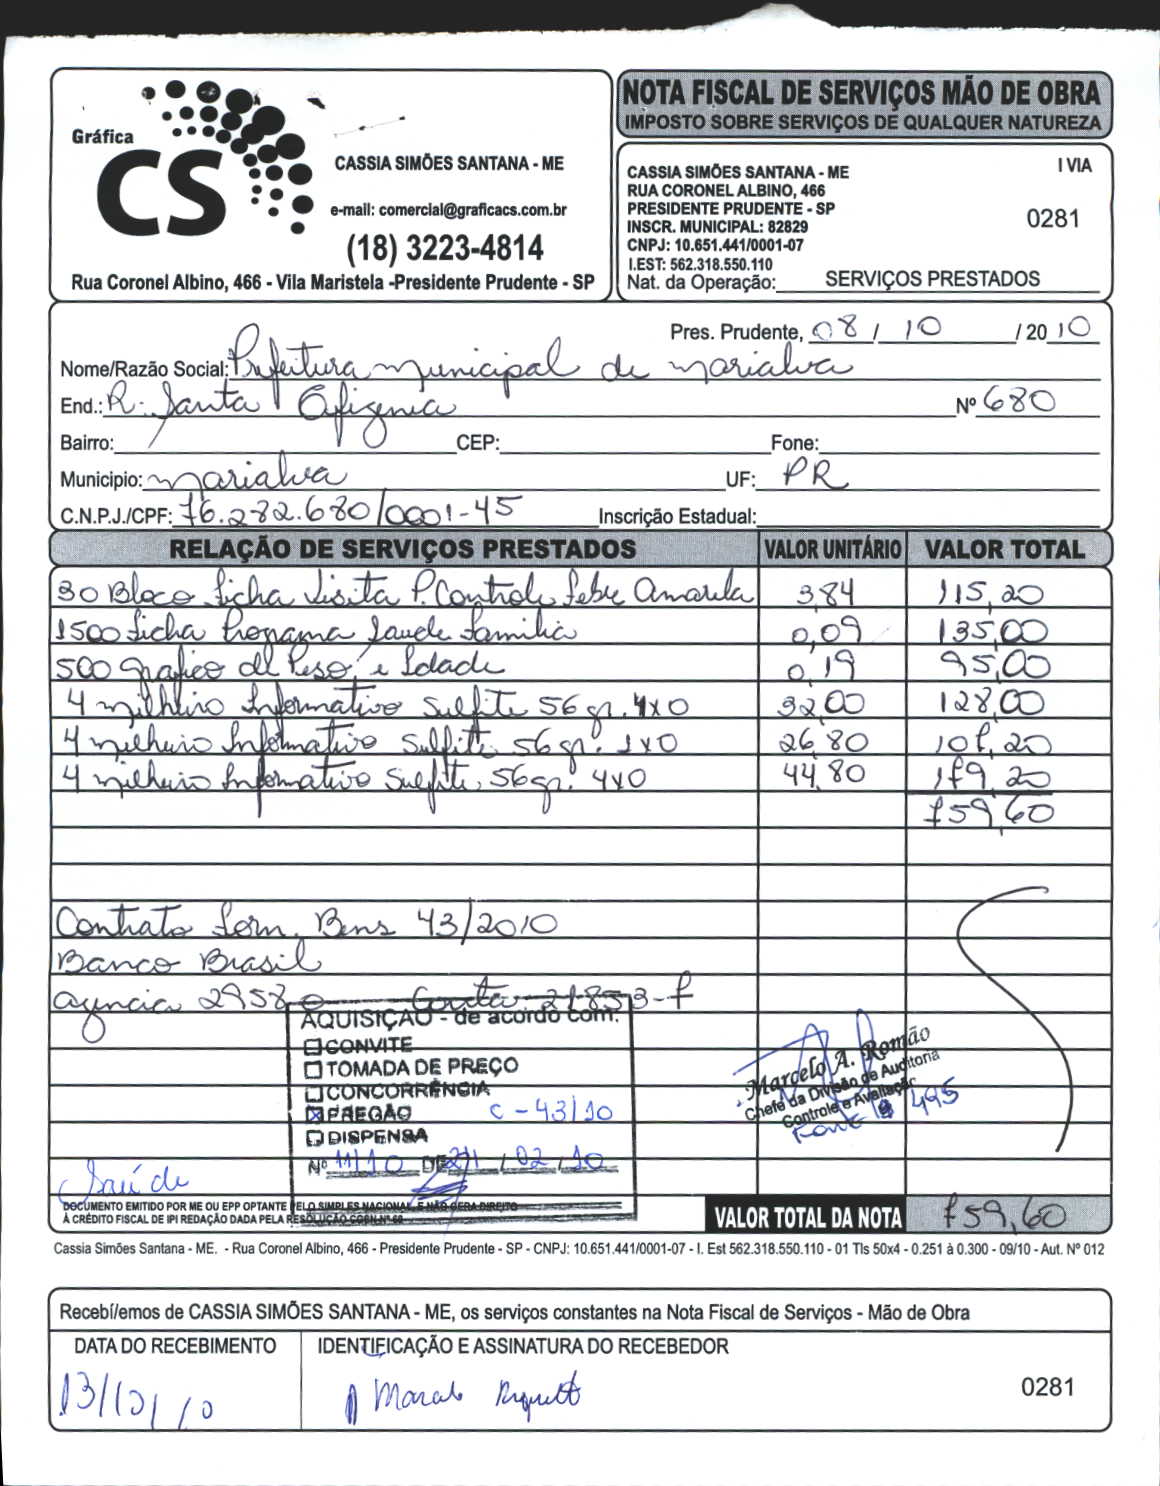 Gráfica
CS
CASSIA SIMÕES SANTANA - ME
e-mail: comercial@graficacs.com.br
(18) 3223-4814
Rua Coronel Albino, 466 - Vila Maristela -Presidente Prudente - SP
NOTA FISCAL DE SERVIÇOS MÃO DE OBRA
IMPOSTO SOBRE SERVIÇOS DE QUALQUER NATUREZA
CASSIA SIMÕES SANTANA - ME
I VIA
RUA CORONEL ALBINO, 466
PRESIDENTE PRUDENTE - SP
0281
INSCR. MUNICIPAL: 82829
CNPJ: 10.651.441/0001-07
I.EST: 562.318.550.110
Nat. da Operação: SERVIÇOS PRESTADOS
Pres. Prudente, 08 / 10 / 2010
Nome/Razão Social: Prefeitura municipal de marialva
End.: R. Santa Efigenia Nº 680
Bairro: CEP: Fone:
Municipio: marialva UF: PR
C.N.P.J./CPF: 76.282.680/0001-45 Inscrição Estadual:
RELAÇÃO DE SERVIÇOS PRESTADOS VALOR UNITÁRIO VALOR TOTAL
30 Bloco ficha visita P. Controle febre Amarela 3,84 115,20
1500 ficha Programa saude familia 0,09 135,00
500 grafico de Peso e Idade 0,19 95,00
4 milheiro Informativo sulfite 56 gr. 4x0 32,00 128,00
4 milheiro Informativo sulfite 56 gr. 1x0 26,80 107,20
4 milheiro Informativo sulfite 56 gr. 4x0 44,80 179,20
759,60
Contrato forn. Bens 43/2010
Banco Brasil
agencia 2958 Conta 21853-7
AQUISIÇÃO - de acordo com:
CONVITE
TOMADA DE PREÇO
CONCORRÊNCIA
PREGÃO C - 43/10
DISPENSA
Nº 11/10 DE 24 / 02 / 10
Marcelo A. Romão
Chefe da Divisão de Auditoria
Controle e Avaliação
495
Saúde
DOCUMENTO EMITIDO POR ME OU EPP OPTANTE PELO SIMPLES NACIONAL, E NÃO GERA DIREITO
À CRÉDITO FISCAL DE IPI REDAÇÃO DADA PELA RESOLUÇÃO
VALOR TOTAL DA NOTA 759,60
Cassia Simões Santana - ME. - Rua Coronel Albino, 466 - Presidente Prudente - SP - CNPJ: 10.651.441/0001-07 - I. Est 562.318.550.110 - 01 Tls 50x4 - 0.251 à 0.300 - 09/10 - Aut. Nº 012
Recebí/emos de CASSIA SIMÕES SANTANA - ME, os serviços constantes na Nota Fiscal de Serviços - Mão de Obra
DATA DO RECEBIMENTO IDENTIFICAÇÃO E ASSINATURA DO RECEBEDOR
13/10/10
0281